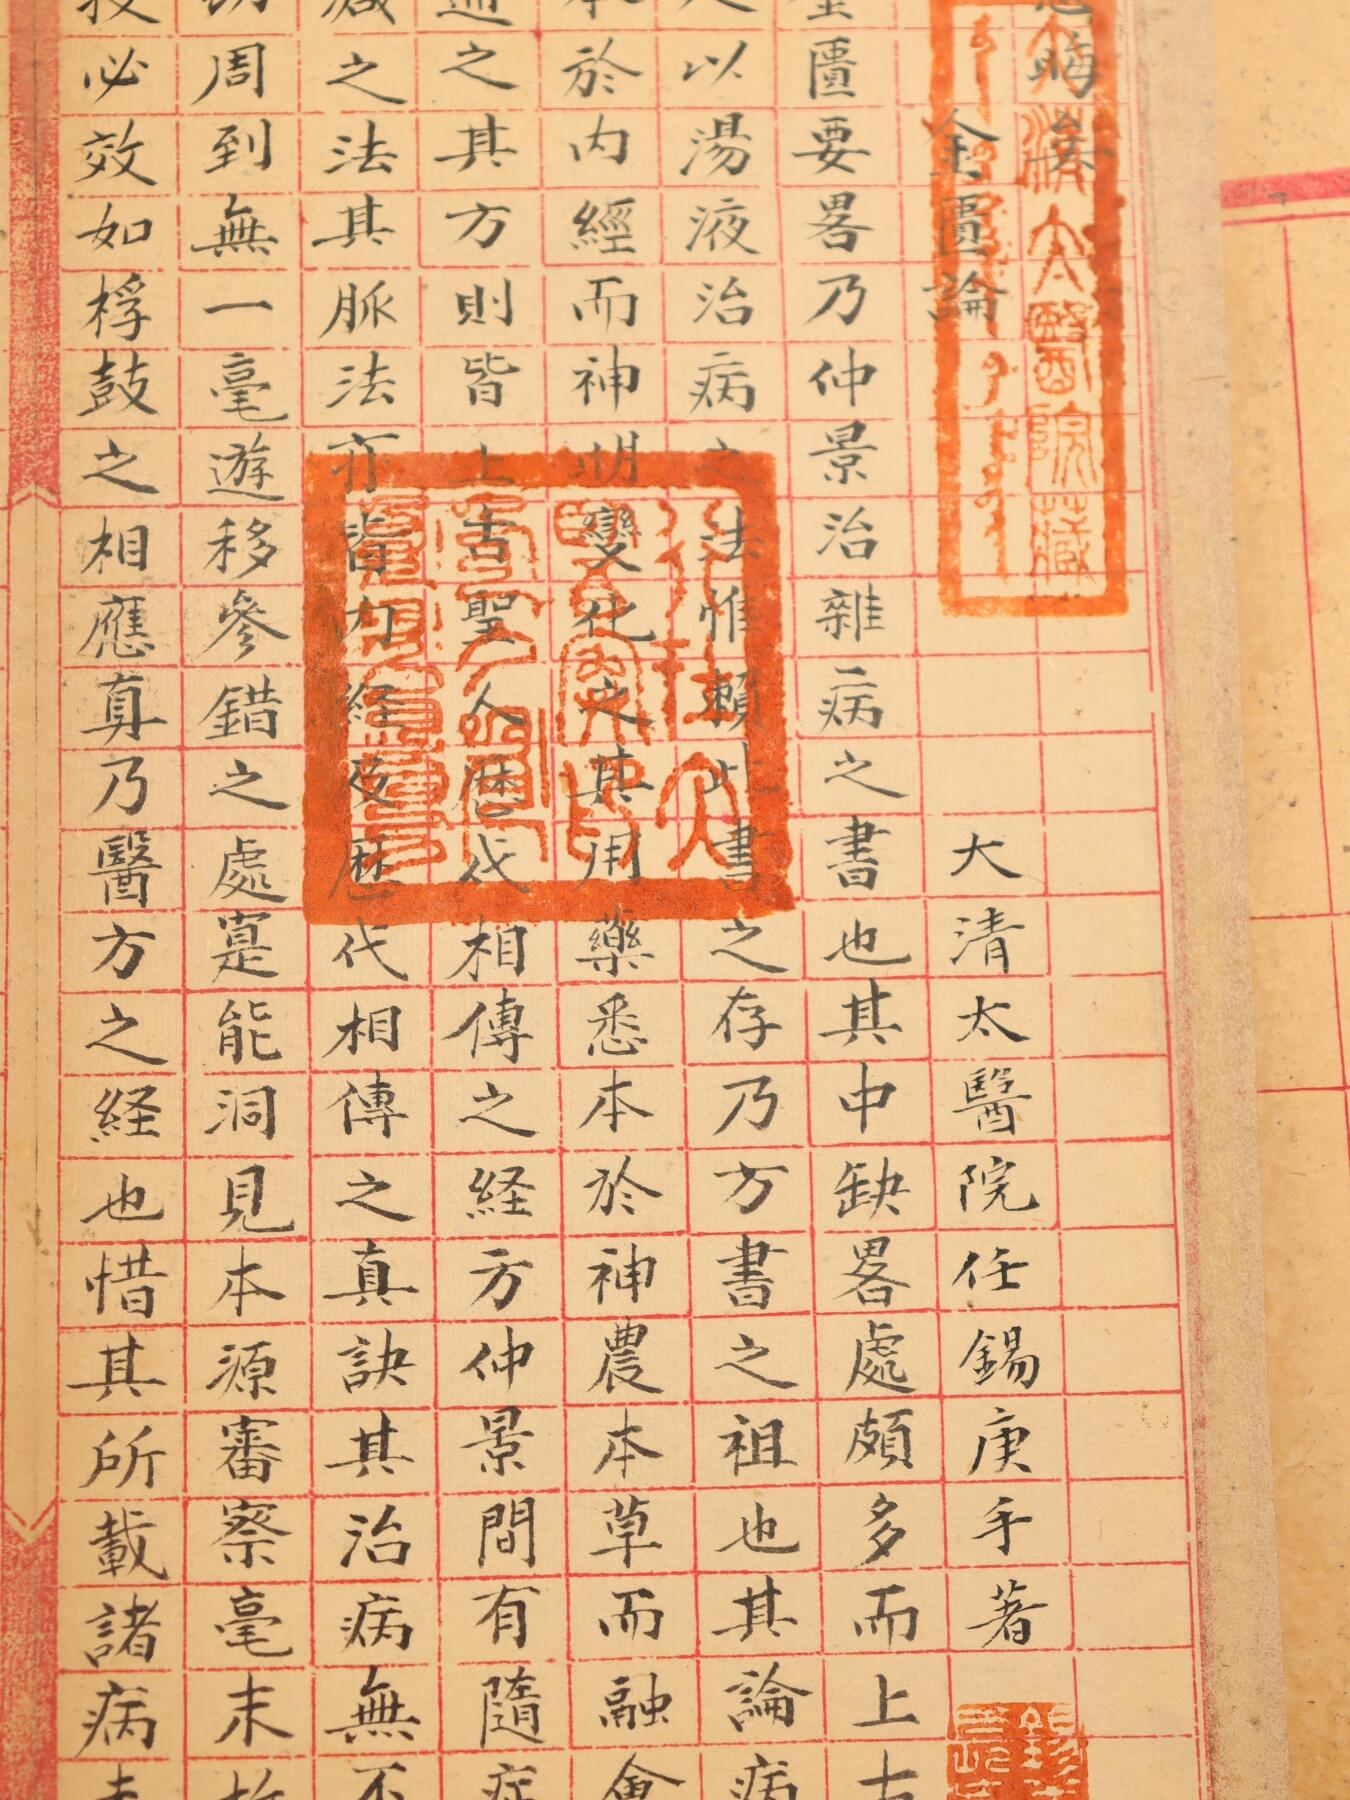 晦
大清太醫院藏
金匱論 大清太醫院任錫庚手著
金匱要畧乃仲景治雜病之書也其中缺畧處頗多而上古
人以湯液治病之法惟賴此書之存乃方書之祖也其論病
本於内經而神明變化之其用藥悉本於神農本草而融會
通之其方則皆上古聖人歷代相傳之経方仲景間有隨症
減之法其脈法亦皆内経及歷代相傳之真訣其治病無不
周到無一毫遊移參錯之處寔能洞見本源審察毫末故
投必效如桴鼓之相應真乃醫方之経也惜其所載諸病未